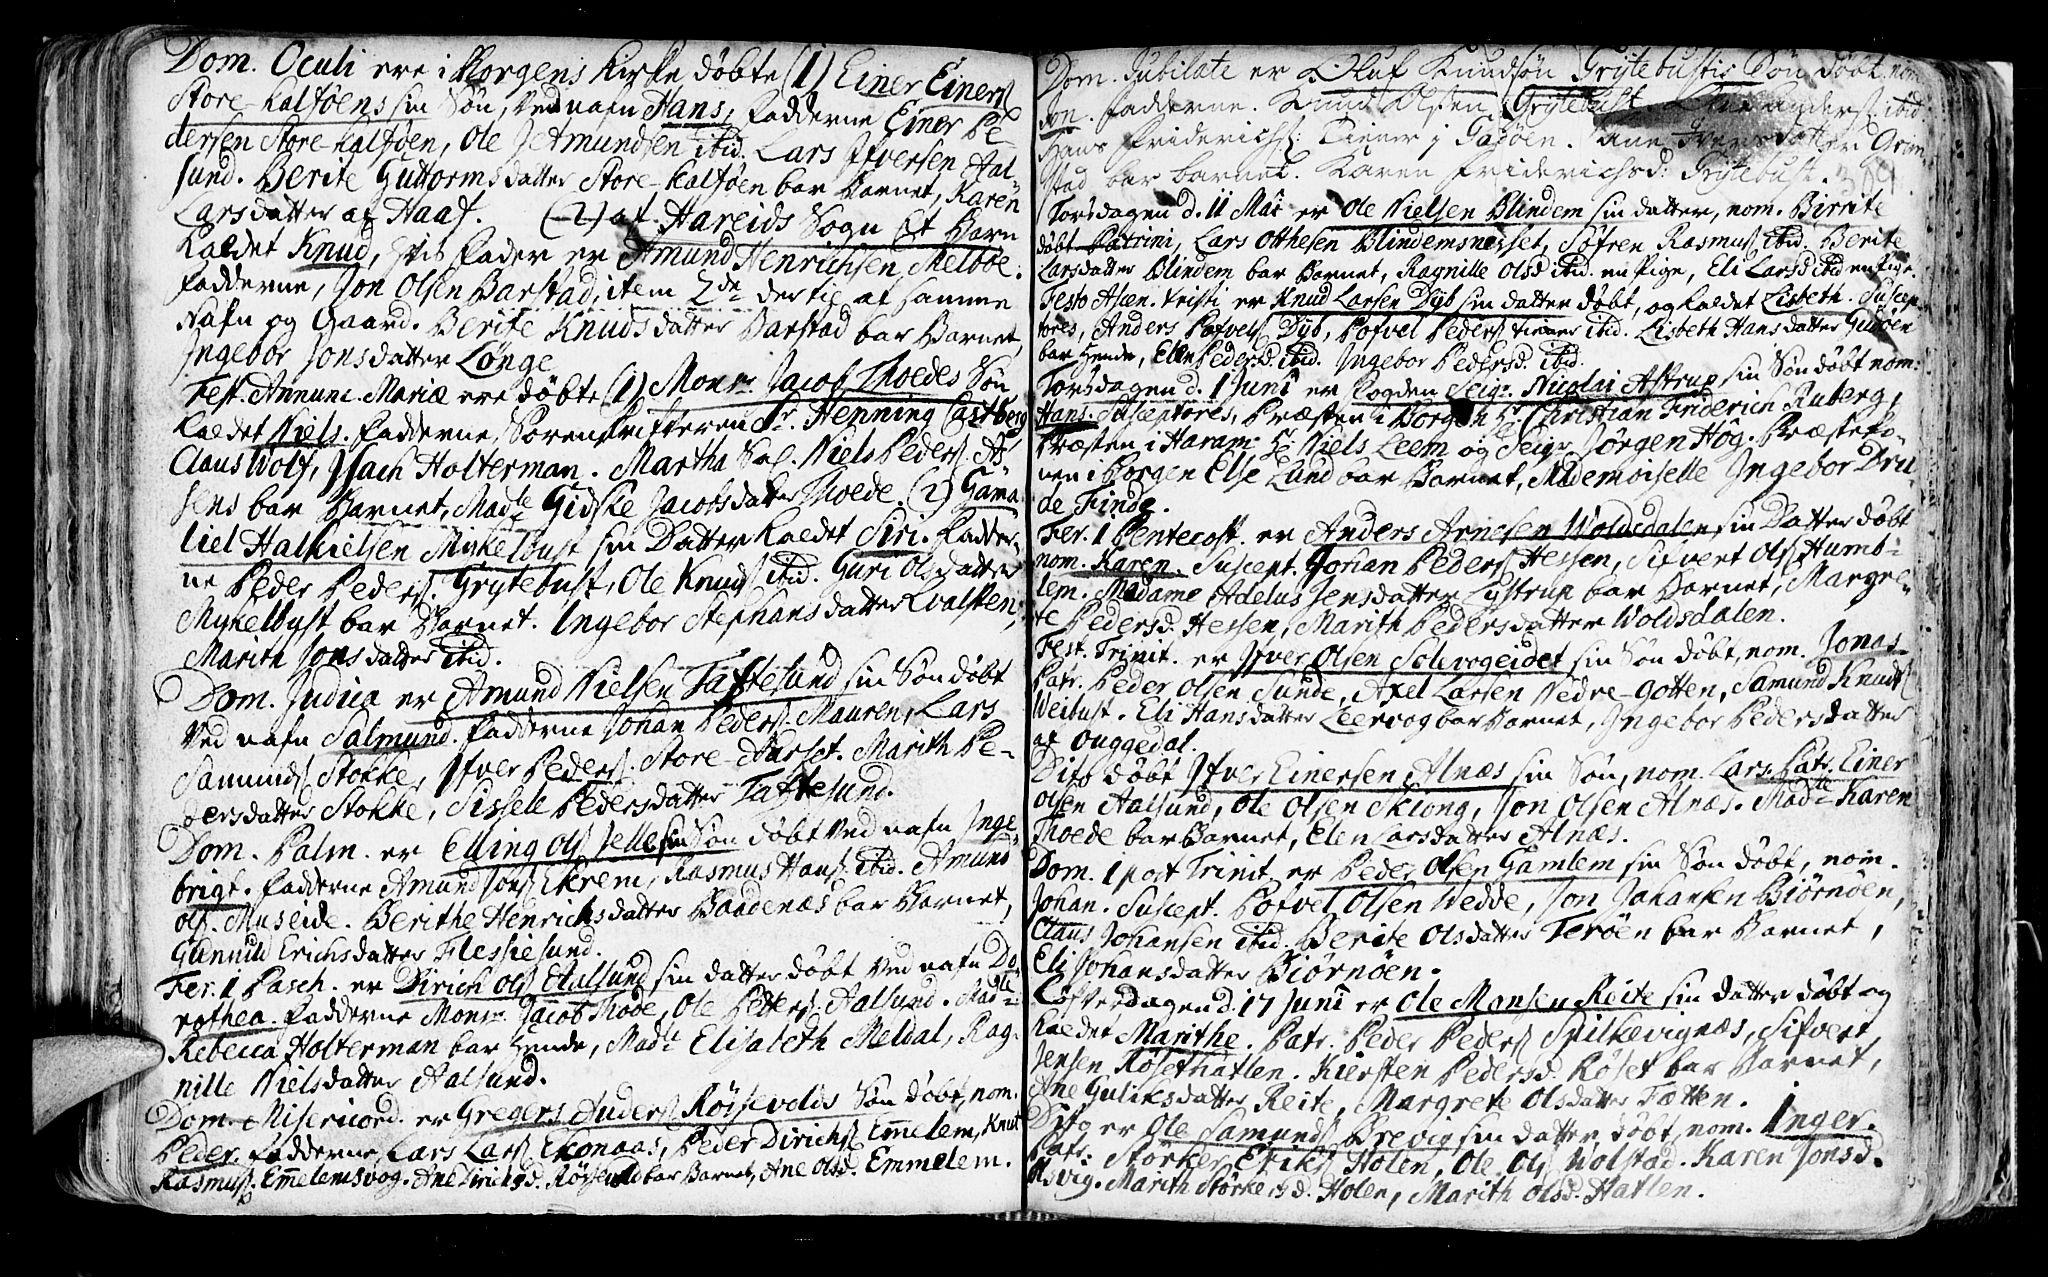 Dom. Oculi ere i Borgens Kirke döbte (1) Einer Einers
Store-Kalföens sin Sön, ved nafn Hans, Fadderne Einer Pe
dersen Store-Kalföen, Ole Amundsen ibid. Lars Ifversen Aal
sund. Berite Guttormsdatter Store-Kalföen bar Barnet, Karen
Larsdatter af Haaf. (2) af Hareids Sogn et Barn
Kaldet Knud, hvis Fader er Amund Henrichsen Melböe.
Fadderne, Jon Olsen Barstad, item 2de dertil af samme
Nafn og Gaard. Berite Knudsdatter Barstad bar Barnet,
Ingebor Jonsdatter Lönge
Fest. Annunc. Mariæ ere döbte (1) Monr. Jacob Thoedes Sön
Kaldet Niels. Fadderne, Sorenskrifveren Sr. Henning Castberg
Claus Wolf, Isach Holterman. Martha Sal. Niels Peders A
sens bar Barnet, Madle Gidske Jacobsdatter Thoede. (2) Gama
liel Halkielsen Myklebust sin Datter Kaldet Siri. Fadder-
ne Peder Peders. Grytebust, Ole Knuds ibid. Guri Olsdatter
Mykelbust bar Barnet. Ingebor Stephansdatter Kvalsten,
Marith Jonsdatter ibid.
Dom. Judica er Amund Nielsen Taftesund sin Sön döbt
Ved nafn Salmund. Fadderne Johan Peders. Mauren, Lars
Samunds Stokke, Ifver Peders. Store-Aarset. Marith Pe-
dersdatter Stokke, Sissele Pedersdatter Taftesund.
Dom. Palm. er Elling Ols Jelle sin Sön döbt Ved nafn Inge
brigt. Fadderne Amund Jons Ekrem, Rasmus Hans. ibid. Amund
Ols. Museide. Berithe Henrichsdatter Baadenæs bar Barnet,
Gunnild Erichsdatter Flessiesund.
Fer. 1 Pasch. er Dirich Ols Aalsund sin datter döbt Ved nafn Do
rothea. Fadderne Monr. Jacob Thode, Ole Petters Aalsund. Madle
Rebecca Holterman bar hende, Madle Elisabeth Meldal, Rag-
nille Nielsdatter Aalsund.
Dom. Misericord. er Gregers Anders Röisevolds Sön döbt, nom.
Peder. Fadderne, Lars Lars Ekonaas, Peder Dirichs Emelem, Knut
Rasmus. Emelemsvog. Ane Dirichsd. Röisevold bar Barnet, Ane Olsd. Emmelem.
Dom. Jubilate er Oluf Knudsön Grytebustis Sön döbt nom
Fadderne. Knud Olsen Grytebust, Anders. ibid
Hans Friderichs: Tiener i Gasöen. Ane Iversdatter Grim-
stad bar barnet. Karen Friderichsd: Grytebust.
Torsdagen d. 11 Maj er Ole Nielsen Blindem sin datter, nom. Birrite
döbt Patrini, Lars Otthesen Blindemsnesset, Söfren Rasmus ibid. Berite
Larsdatter Blindem bar Barnet, Ragnille Olsd ibid. en Pige, Eli Larsd ibid en Pige.
Festo Ascen. Kristi er Knud Larsen Dyb sin datter döbt, og Kaldet Lisbeth. Suscep-
tores, Anders Pofvels Dyb, Pofvel Peders tiener ibid. Lisbeth Hansdatter Gudöen
bar hende, Elen Pedersd. ibid. Ingebor Pedersd. ibid.
Torsdagen d. 1 Juni er Fogden Seigr. Nicolai Astrup sin Sön döbt nom.
Hans. Susceptores, Præsten i Borgen Hr. Christian Friderich Ruberg,
Præsten i Haram Hr. Niels Leem og Seigr. Jörgen Hög. Præstefo-
nen i Borgen Else Lund bar Barnet, Mademoiselle Ingebor Dru
de Finde.
Fer. 1 Pentecost. er Anders Arnesen Woldsdalen sin Datter döbt
nom. Karen. Suscept. Johan Peders Hessen, Sifvert Ols Humb-
lem. Madame Adelus Jensdatter Lystrup bar Barnet, Margre-
te Pedersd. Hessen, Marith Pedersdatter Woldsdalen.
Fest. Trinit. er Ifver Olsen Solevogeidet sin Sön döbt, nom. Jonas.
Patr. Peder Olsen Sunde, Axel Larsen Nedre-Gotten, Samund Knuds
Weibust. Eli Hansdatter Leervog bar Barnet, Ingebor Pedersdatter
af Ouggedal.
Dito döbt Ifver Einersen Alnæs sin Sön, nom. Lars. Patr. Einer
Olsen Aalsund, Ole Olsen Skiong, Jon Olsen Alnæs. Madle Karen
Thoede bar Barnet, Elen Larsdatter Alnæs.
Dom. 1 post Trinit. er Peder Olsen Gamlem sin Sön döbt, nom.
Johan. Suscept. Pofvel Olsen Wedde, Jon Johansen Biörnöen,
Claus Johansen ibid. Berite Olsdatter Teröen bar Barnet,
Eli Johansdatter Biörnöen.
Löfverdagen d. 17 Juni er Ole Mansen Reite sin datter döbt og
Kaldet Marithe. Patr. Peder Peders Spilkevignæs, Sifvert
Jensen Rösethatlen. Kiersten Pedersd. Röset bar Barnet,
Ane Guliksdatter Reite, Margrete Olsdatter Tætten.
Dito er Ole Samunds Brevig sin datter döbt, nom. Inger.
Patr. Storker Eriks Holen, Ole Ols Wolstad. Karen Jonsd.
Olsvig. Marith Störkersd. Holen, Marith Olsd. Hatlen.